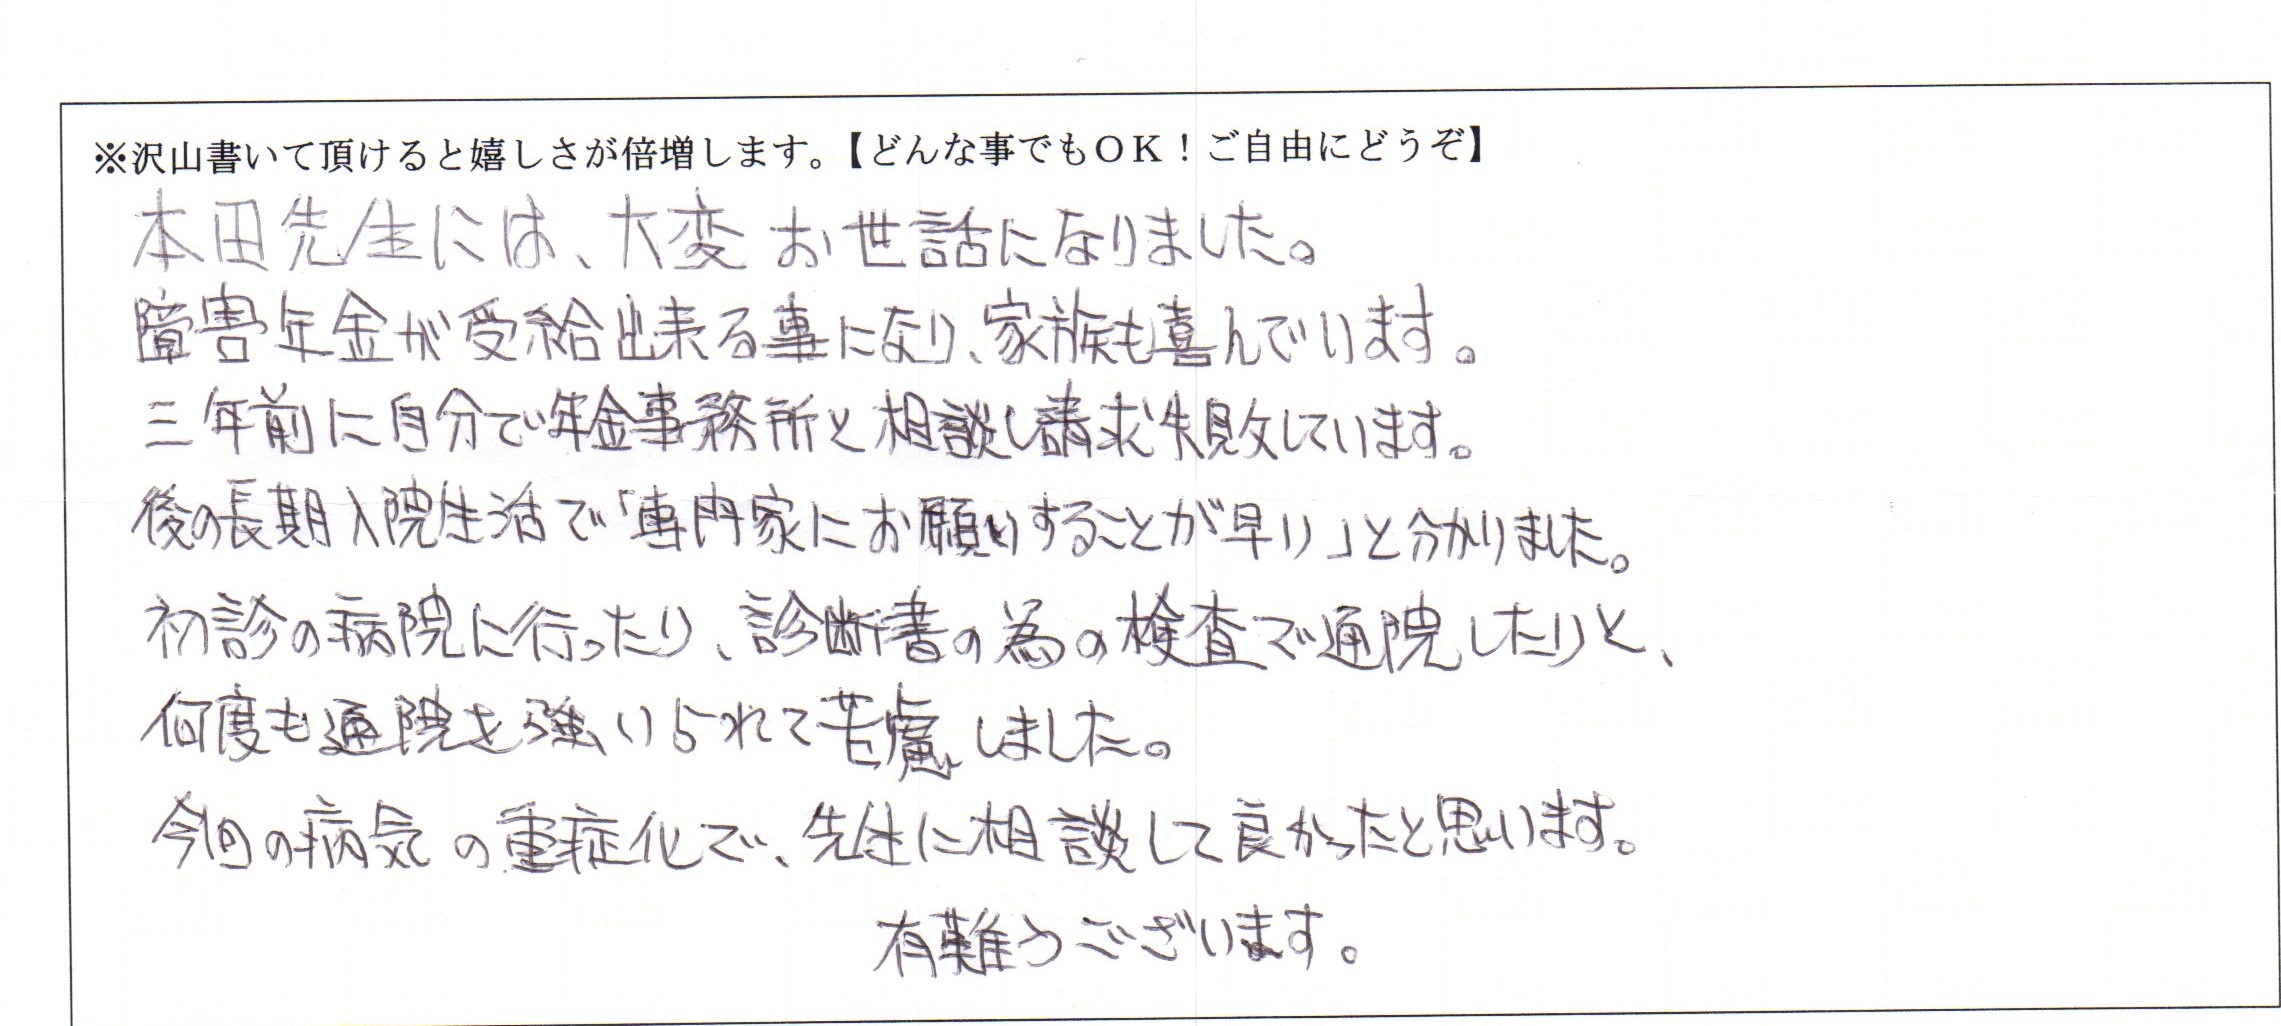 ※沢山書いて頂けると嬉しさが倍増します。【どんな事でもOK！ご自由にどうぞ】
本田先生には、大変お世話になりました。
障害年金が受給出来る事になり、家族も喜んでいます。
三年前に自分で年金事務所と相談し請求失敗しています。
後の長期入院生活で「専門家にお願いすることが早い」と分かりました。
初診の病院に行ったり、診断書の為の検査で通院したりと、
何度も通院を強いられて苦慮しました。
今回の病気の重症化で、先生に相談して良かったと思います。
有難うございます。